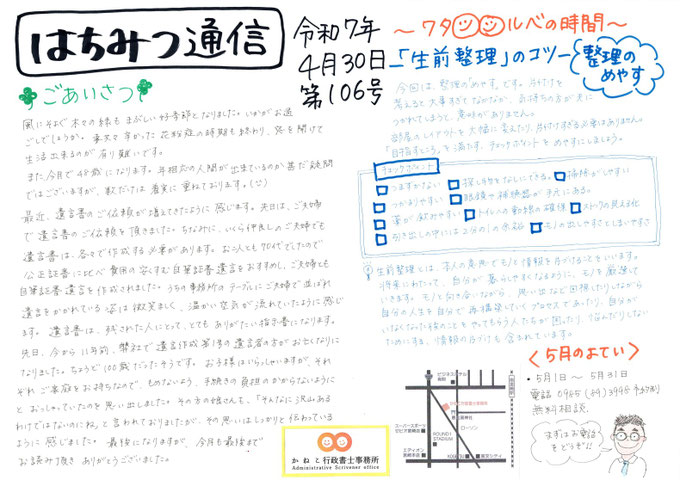 はちみつ通信
令和7年
4月30日
第106号
ごあいさつ
風にそよぐ木々の緑もまぶしい好季節となりました。いかがお過
ごしでしょうか。長かった花粉症の時期も終わり、窓を開けて
生活出来るのが有り難いです。
また今月で48歳になります。年相応の人間が出来ているのか甚だ疑問
ではございますが、数だけは着実に重ねております。
最近、遺言書のご依頼が増えてきたように感じます。先日は、ご夫婦
で遺言書のご依頼を頂きました。ちなみに、いくら仲良しのご夫婦でも
遺言書は、各々で作成する必要があります。お二人とも70代でしたので
公正証書に比べ費用の安くすむ自筆証書遺言をおすすめし、ご夫婦とも
自筆証書遺言を作成されました。うちの事務所のテーブルにご夫婦で並ばれ
遺言をかかれている姿は微笑ましく、温かい空気が流れていたように感じ
ます。遺言書は、残された人にとって、とてもありがたい指示書になります。
先日、今から11年前、弊社で遺言作成第1号の遺言者の方がお亡くなりに
なりました。ちょうど100歳だったそうです。お子様はいらっしゃいますが、それ
ぞれご家庭をお持ちなので、もめないよう、手続きの負担のかからないように
とおっしゃっていたのを思い出しました。その方の娘さんも、「そんなに沢山ある
わけではないのにね」と言われておりましたが、その思いはしっかりと伝わっている
ように感じました。最後になりますが、今月も最後まで
お読み頂きありがとうございました。
〜ワタルベの時間〜
「生前整理」のコツ
整理の
めやす
今回は、整理の「めやす」です。片付けを
考えると大事すぎてなかなか、お持ちの方が先に
つかれてしまうと、意味がありません。
部屋のレイアウトを大幅に変えたり、片付けすぎる必要はありません。
「目指すところ」を満たす、チェックポイントをめやすにしましょう。
チェックポイント
□つまずかない □探し物をなしにできる。 □掃除がしやすい
□つかまりやすい □眼鏡や補聴器が手元にある。
□薬が飲めやすい □トイレへの動線の確保 □ストックの見える化
□引き出しの中には2分の1の余裕 □モノの出しやすさとしまいやすさ
生前整理とは、本人の意思でモノと情報を片づけることをいいます。
将来にわたって、自分が暮らしやすくなるように、モノを厳選して
いきます。モノと向き合いながら、思い出など回想したりしながら
自分の人生を自分で再構築していくプロセスであったり、自分が
いなくなった後のことをやってもらう人たちが困ったり、悩んだりしない
ためにすみ、情報の片づけも含まれています。
〈5月のよてい〉
・5月1日〜5月31日
電話 0985(69)3998 予約制
無料相談
まずはお電話
をどうぞ!!
かねこ行政書士事務所
Administrative Scrivener office
ROUND1
STADIUM
ローソン